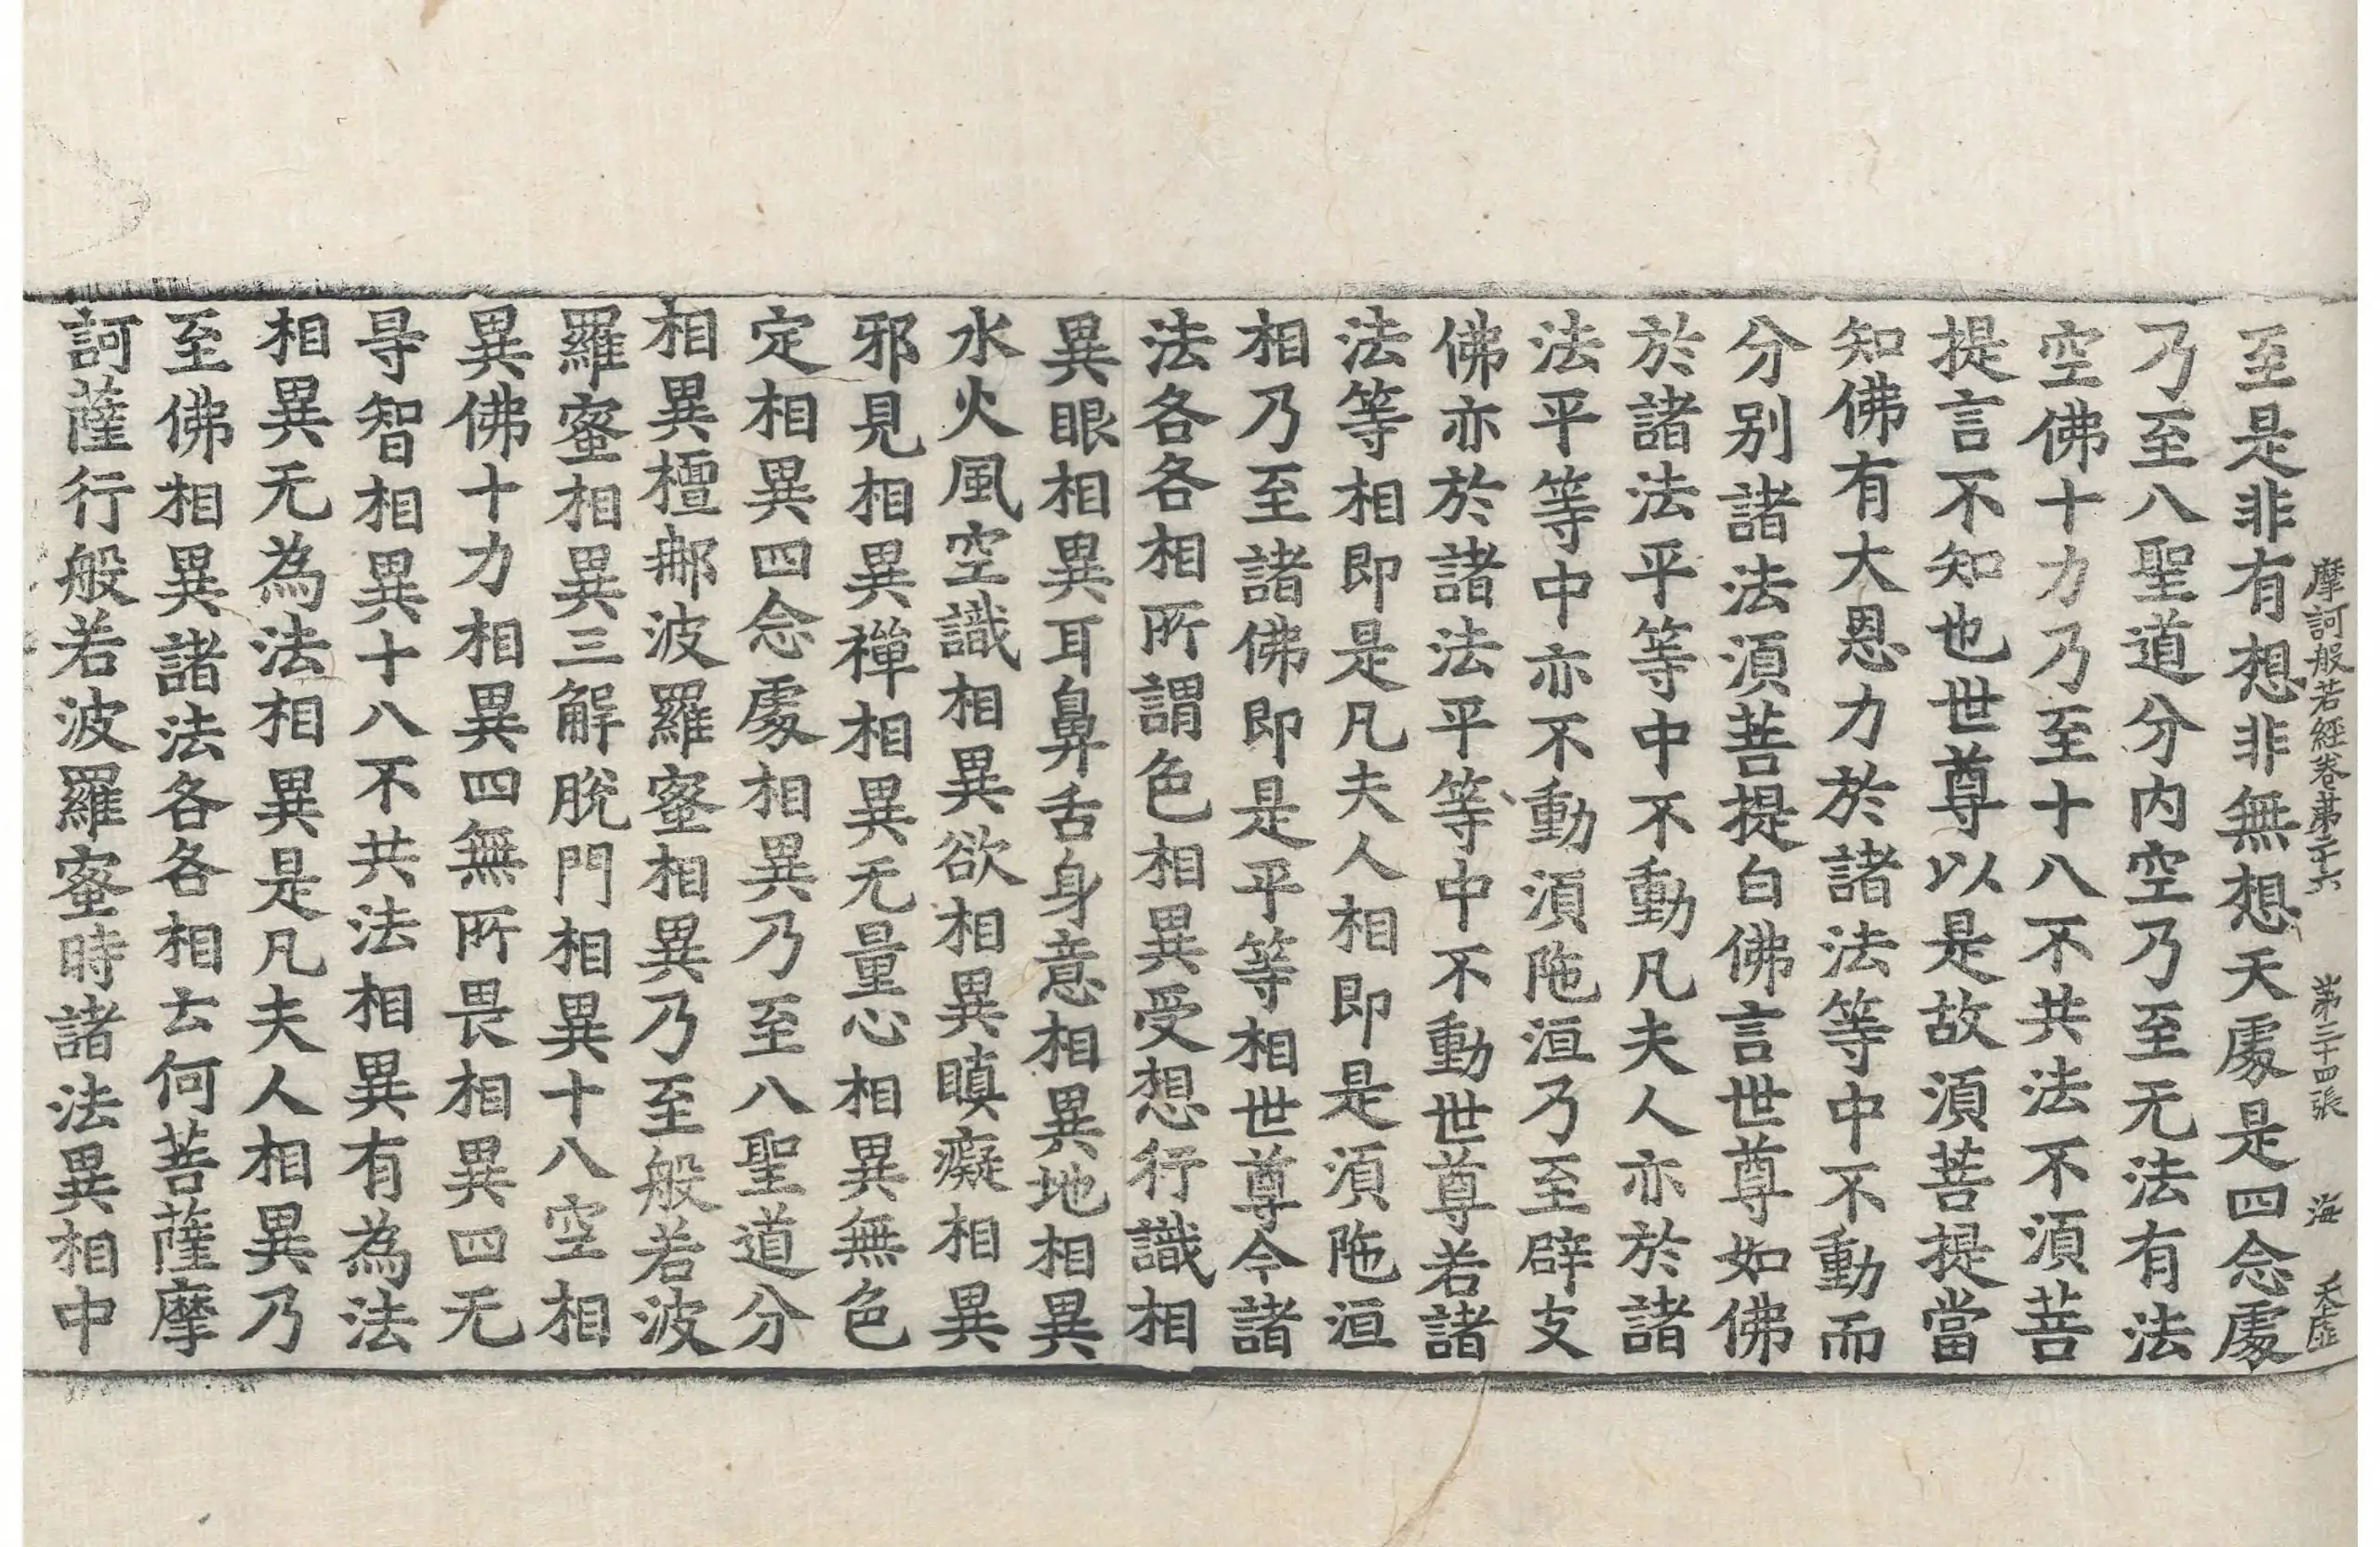 摩訶般若經卷第二十六　第三十四張　海　天虛
至是非有想非無想天處是四念處
乃至八聖道分内空乃至无法有法
空佛十力乃至十八不共法不須菩
提言不知也世尊以是故須菩提當
知佛有大恩力於諸法等中不動而
分别諸法須菩提白佛言世尊如佛
於諸法平等中不動凡夫人亦於諸
法平等中亦不動須陁洹乃至辟支
佛亦於諸法平等中不動世尊若諸
法等相即是凡夫人相即是須陁洹
相乃至諸佛即是平等相世尊今諸
法各各相所謂色相異受想行識相
異眼相異耳鼻舌身意相異地相異
水火風空識相異欲相異瞋癡相異
邪見相異禪相異无量心相異無色
定相異四念處相異乃至八聖道分
相異檀那波羅蜜相異乃至般若波
羅蜜相異三解脫門相異十八空相
異佛十力相異四無所畏相異四无
㝵智相異十八不共法相異有為法
相異无為法相異是凡夫人相異乃
至佛相異諸法各各相云何菩薩摩
訶薩行般若波羅蜜時諸法異相中